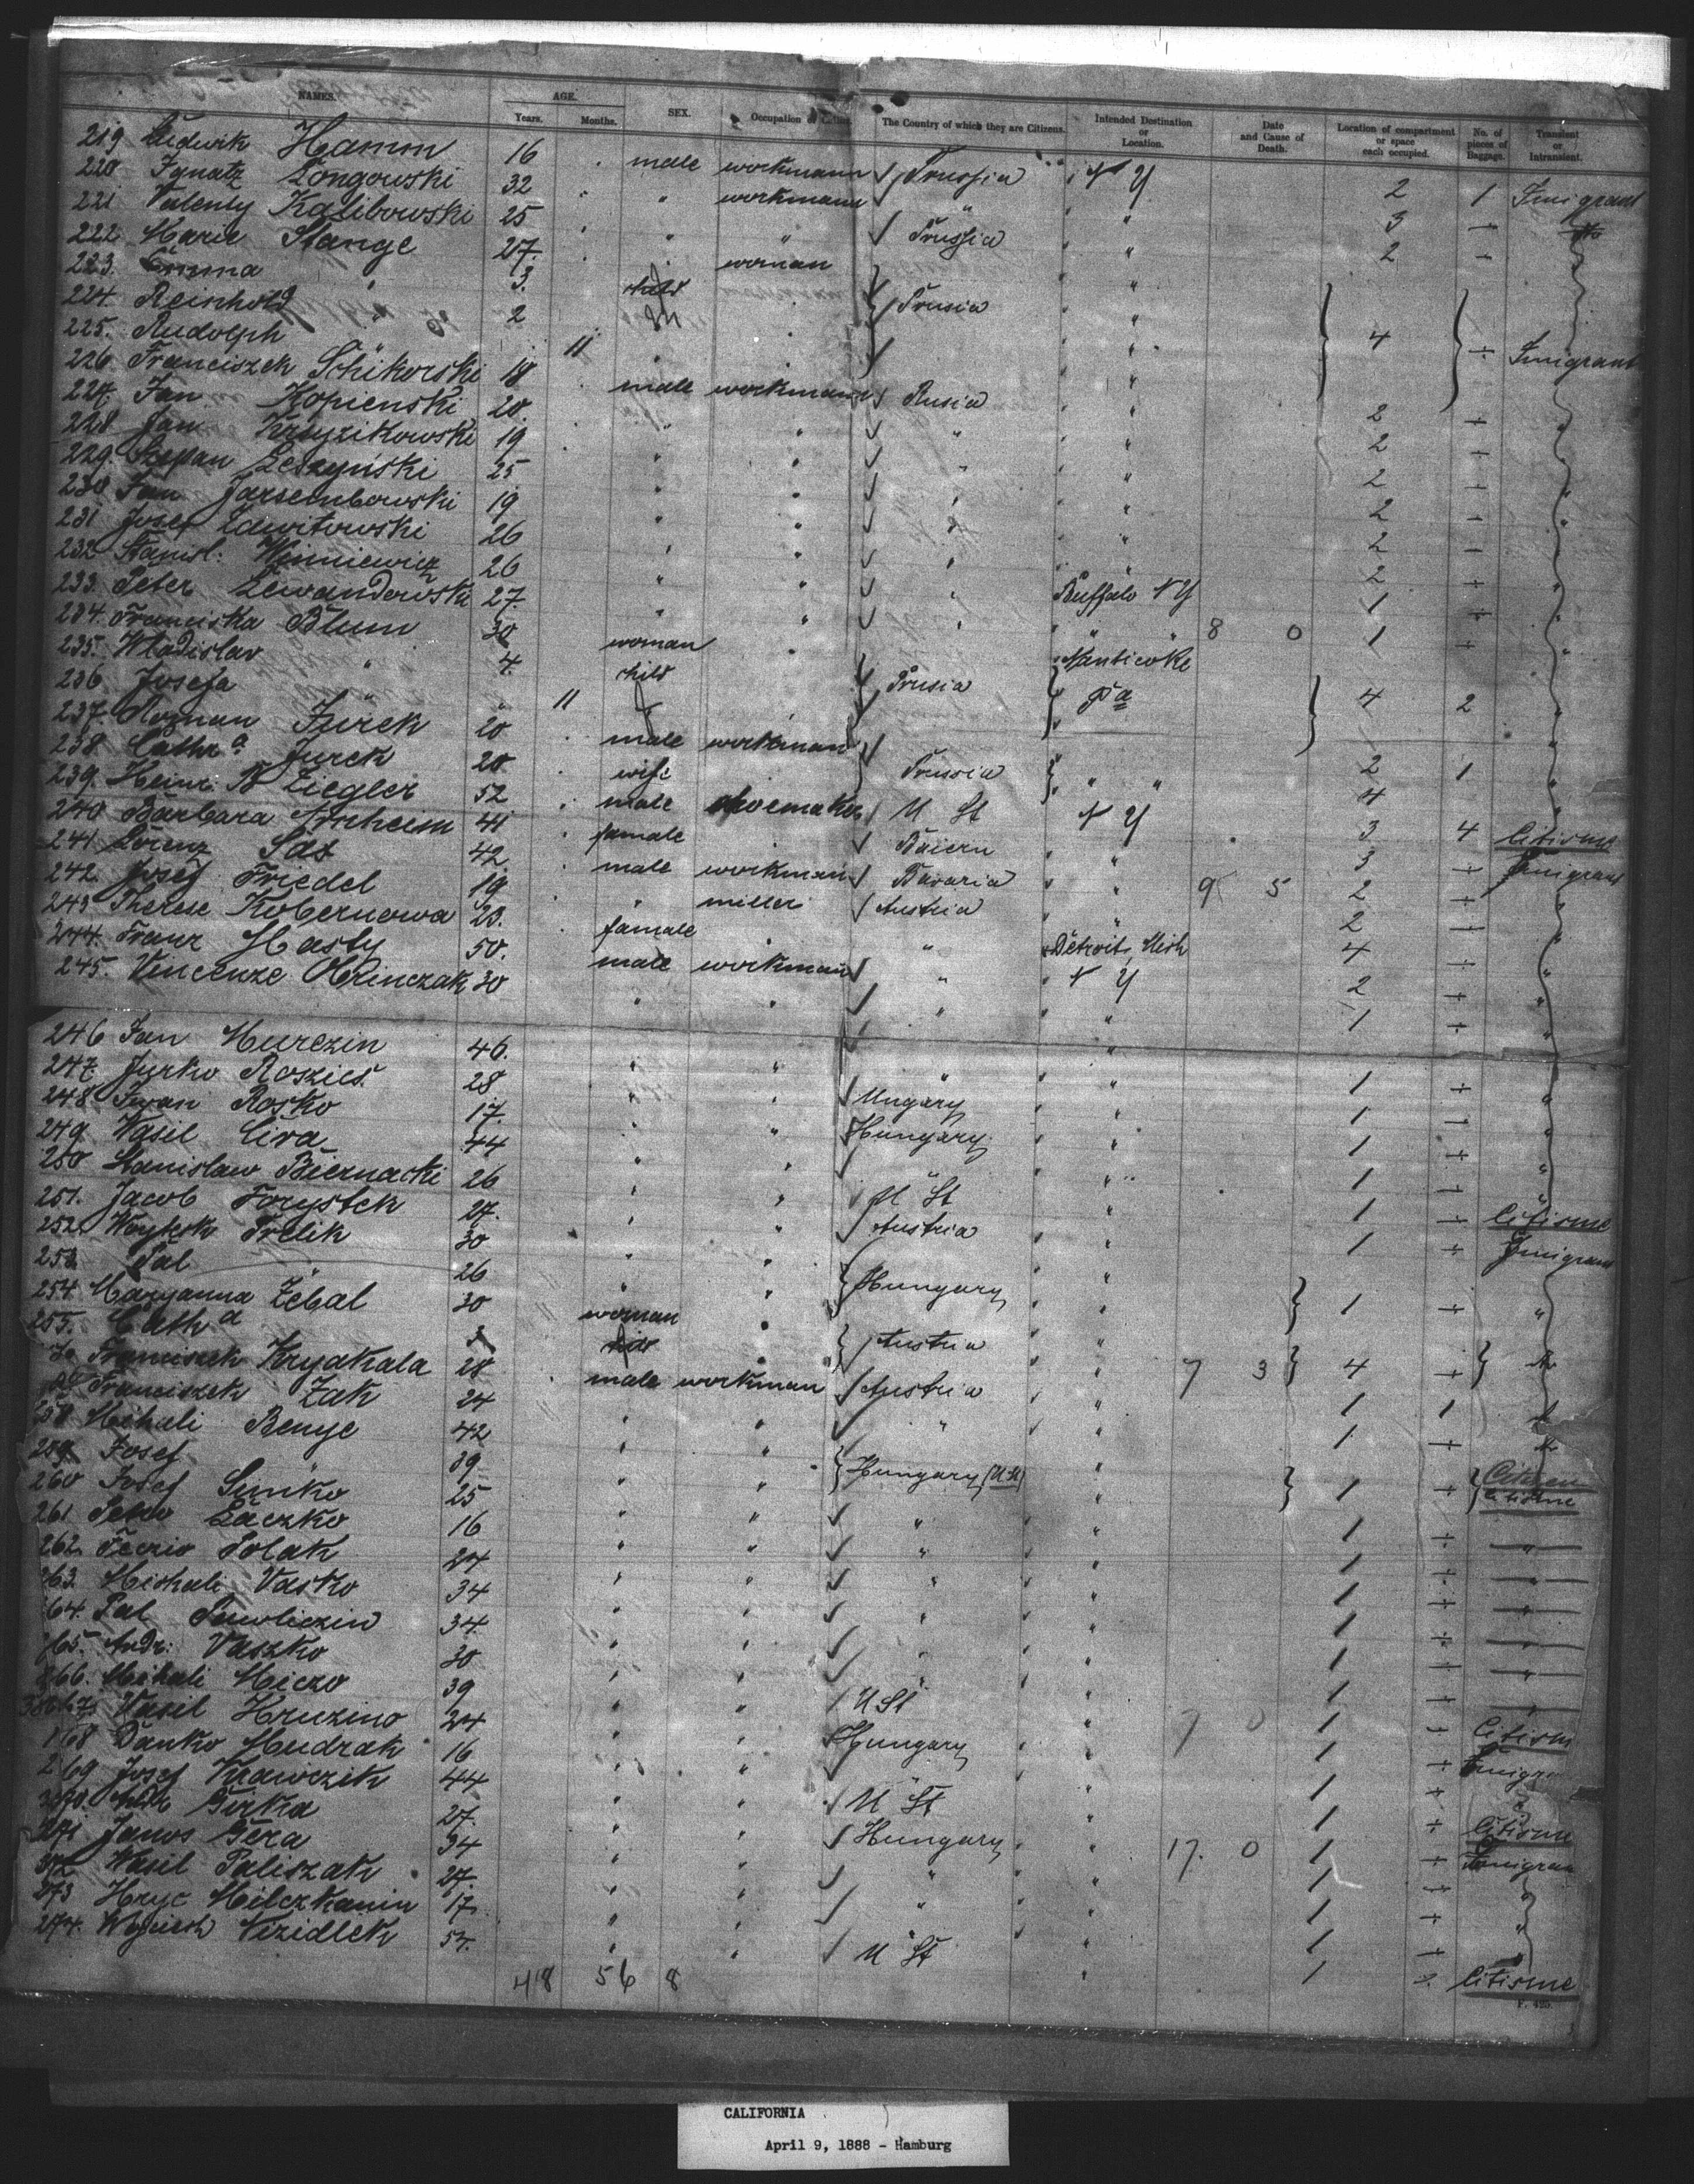 NAMES. AGE. SEX. Occupation The Country of which they are Citizens. Intended Destination or Location. Date and Cause of Death. Location of compartment or space each occupied. No. of pieces of Baggage. Transient or Intransient.
Years. Months.
219 Ludwik Hamm 16 male workmann Prussia N Y 2 1 Imigrant
220 Ignatz Longowski 32 " workmann " " 3 1
221 Valenty Kalibowski 25 " " Prussia " 2 1
222 Marie Stange 27. woman "
223. Emma " 3. child Prusia "
224. Reinhold " 2 " 4 1 Imigrant
225. Rudolph " 11 " "
226. Franciszek Schikorski 18 male workmann Rusia " 2 1 "
227. Jan Kopienski 20. " " " " 2 1
228 Jan Krsyzikowski 19 " " " " 2 1 "
229. Szepan Leszynski 25 " " " " 2 1 "
230 Jan Jarsembowski 19 " " " " 2 1 "
231 Josef Zawitowski 26 " " " " 2 1
232 Stanisl. Winniewicz 26 " " " Buffalo N Y 1 1 "
233. Peter Lewandowski 27. " " " " " 8 0 1 1 "
234. Franciska Blum 30 woman Nanticoke
235. Wladislav " 4. child Prusia Pa 4 2 "
236 Josefa " 11
237. Roman Jurek 20 male workman 2 1 "
238 Cathra. Jurek 20 wife Prussia " " 4 "
239. Heinr. B Ziegler 52 male shoemaker U St N Y 3 4 Citisme
240 Barbara Arnheim 41 famale Baiern " 3 1 Imigrant
241 Lorenz Sas 42 male workman Bavaria " 9 5 2 1 "
242. Josef Friedel 19 " miller Austria " 2 1 "
243 Therese Kobernowa 23. famale " Detroit, Mich 4 1 "
244. Franz Hasty 50. male workman " N Y 2 1 "
245. Vincenze Hrinczak 30 " " " " 1 1 "
246 Jan Murczin 46. " " " " 1 1 "
247. Jurko Roszics 28 " " Ungary " 1 1 "
248 Iwan Rosko 17. " " Hungary " 1 1 "
249. Wasil Cira 44 " " " " 1 1 "
250 Stanislaw Biernacki 26 " " U St " 1 1 Citisme
251. Jacob Forystek 27. " " Austria " 1 1 Imigrant
252. Woytek Trelik 30 " " Hungary "
253. Pal " 26 " " " 1 1 "
254 Maryanna Zebal 30 woman Austria "
255. Catha 3 " 7 3 4 1
Franciszek Krydkala 28 male workman Austria " 1 1
Franciszek Zak 24 " " " " 1 1
258 Mihali Benye 42 " " Hungary (U St) " Citizen
259. Josef 39 " " " 1 1 Citisme
260 Josef Simko 25 " " " " 1 1 "
261 Petro Laczko 16 " " " " 1 1 "
262. Fecrio Polak 24 " " " " 1 1 "
263. Michali Vasko 34 " " " " 1 1 "
264. Pal Pawliczin 34. " " " " 1 1 "
265. Andr. Vaszko 30 " " " " 1 1 "
266. Mihali Miczo 39 " " U St " 7 0 1 1 Citism
267. Vasil Hruzino 24 " " Hungary " 1 1 Imigra
268 Danko Mudrak 16 " " " " 1 1 "
269 Josef Krawczik 44 " " U St " 1 1 Citisme
270. Andr Girka 27. " " Hungary " 17. 0 1 1 Imigran
271 Janos Gera 34 " " " " 1 1 "
272 Wasil Paliszak 27. " " " " 1 1 "
273 Hryc Milczkanin 17. " " " " 1 1 "
274. Wojciech Nizidlek 54. " " U St " 1 2. Citisme
418 56 8
F. 425.
CALIFORNIA
April 9, 1888 - Hamburg